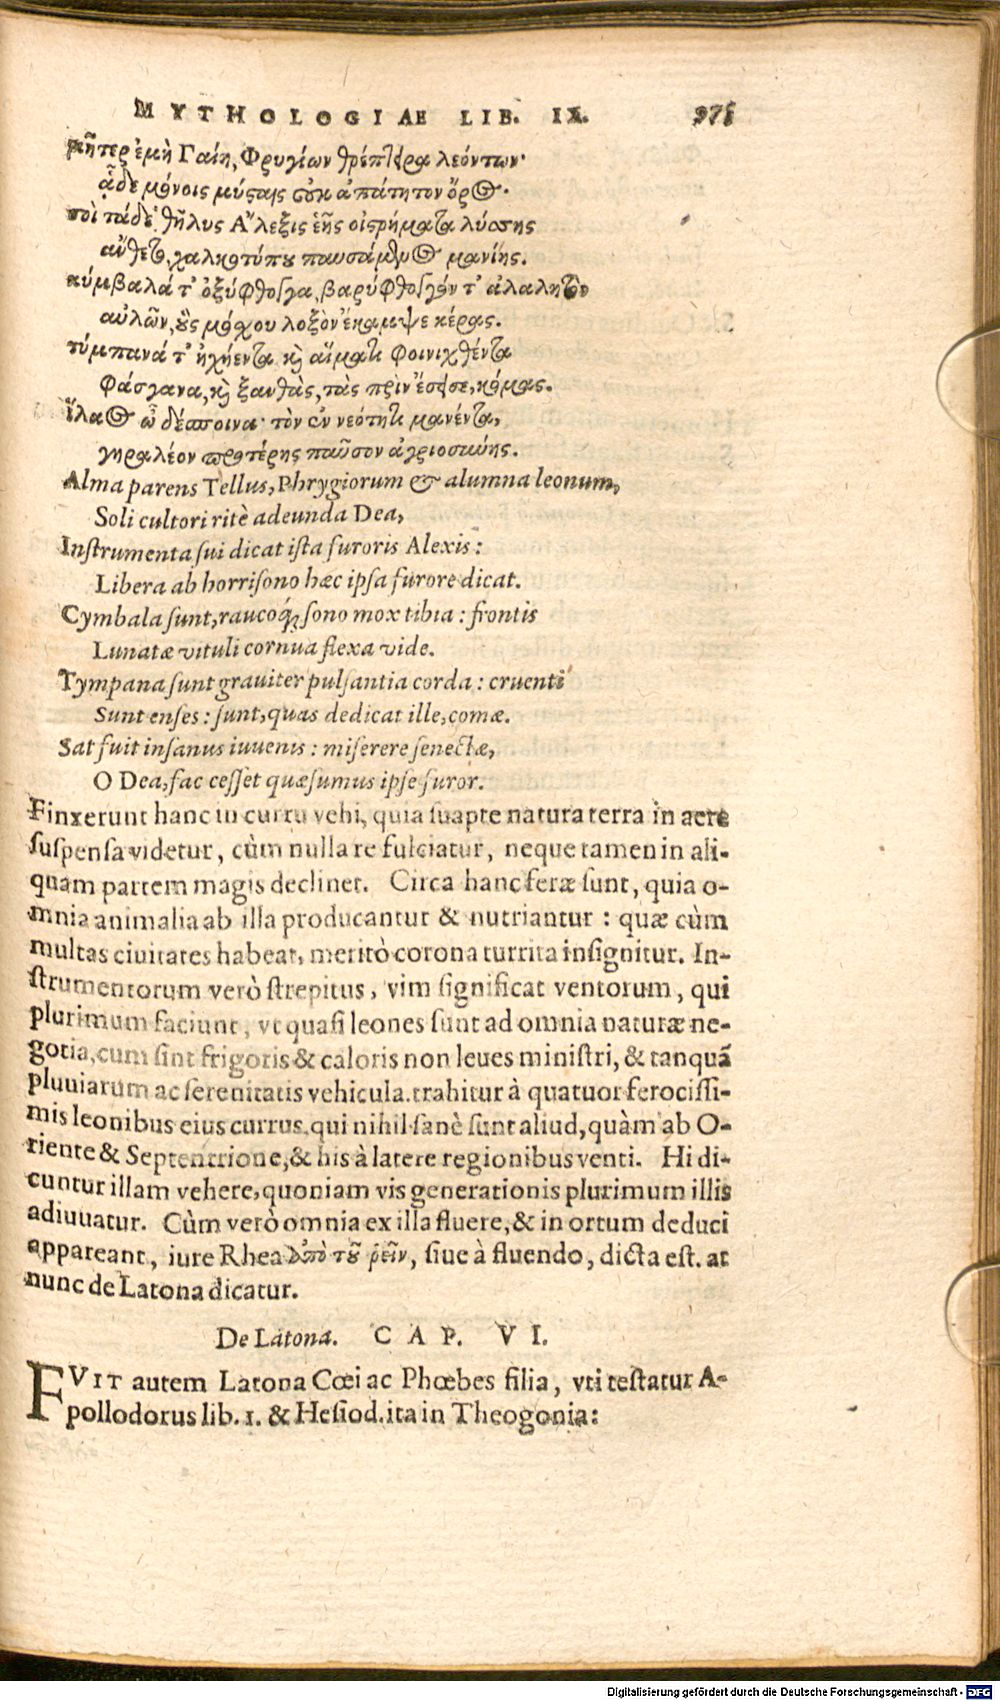 MYTHOLOGIAE LIB. IX. 975
μῆτερ ἐμὴ Γαίη, Φρυγίων θρέπτειρα λεόντων·
ᾇδε μόνοις μύσαις οὐκ ἀπάτητον ὄρος·
σοὶ τάδε θῆλυς Ἄλεξις ἑῆς οἰστρήματα λύσσης
ἄνθετο, χαλκοτύπου παυσάμενος μανίης.
κύμβαλά τ' ὀξύφθογγα, βαρυφθόγγόν τ' ἀλαλητὸν
αὐλῶν, οὓς μόσχου λοξὸν ἔκαμψε κέρας.
τύμπανά τ' ἠχήεντα, καὶ αἵματι φοινιχθέντα
φάσγανα, καὶ ξανθὰς, τὰς πρὶν ἔσεισε, κόμας.
ἵλαος ὦ δέσποινα· τὸν ἐν νεότητι μανέντα,
γηραλέον προτέρης παῦσον ἀγριοσύνης.
Alma parens Tellus, Phrygiorum & alumna leonum,
Soli cultori ritè adeunda Dea,
Instrumenta sui dicat ista furoris Alexis:
Libera ab horrisono hæc ipsa furore dicat.
Cymbala sunt, raucoq́; sono mox tibia: frontis
Lunatæ vituli cornua flexa vide.
Tympana sunt grauiter pulsantia corda: cruenti
Sunt enses: sunt, quas dedicat ille, comæ.
Sat fuit insanus iuuenis: miserere senectæ,
O Dea, fac cesset quæsumus ipse furor.
Finxerunt hanc in curru vehi, quia suapte natura terra in aere
suspensa videtur, cùm nulla re fulciatur, neque tamen in ali-
quam partem magis declinet. Circa hanc feræ sunt, quia o-
mnia animalia ab illa producantur & nutriantur: quæ cùm
multas ciuitates habeat, meritò corona turrita insignitur. In-
strumentorum verò strepitus, vim significat ventorum, qui
plurimum faciunt, vt quasi leones sunt ad omnia naturæ ne-
gotia, cum sint frigoris & caloris non leues ministri, & tanquã
pluuiarum ac serenitatis vehicula. trahitur à quatuor ferocissi-
mis leonibus eius currus, qui nihil sanè sunt aliud, quàm ab O-
riente & Septentrione, & his à latere regionibus venti. Hi di-
cuntur illam vehere, quoniam vis generationis plurimum illis
adiuuatur. Cùm verò omnia ex illa fluere, & in ortum deduci
appareant, iure Rhea ἀπὸ τοῦ ῥεῖν, siue à fluendo, dicta est. at
nunc de Latona dicatur.
De Latona. CAP. VI.
FVIT autem Latona Cœi ac Phœbes filia, vti testatur A-
pollodorus lib. 1. & Hesiod. ita in Theogonia:
Digitalisierung gefördert durch die Deutsche Forschungsgemeinschaft - DFG